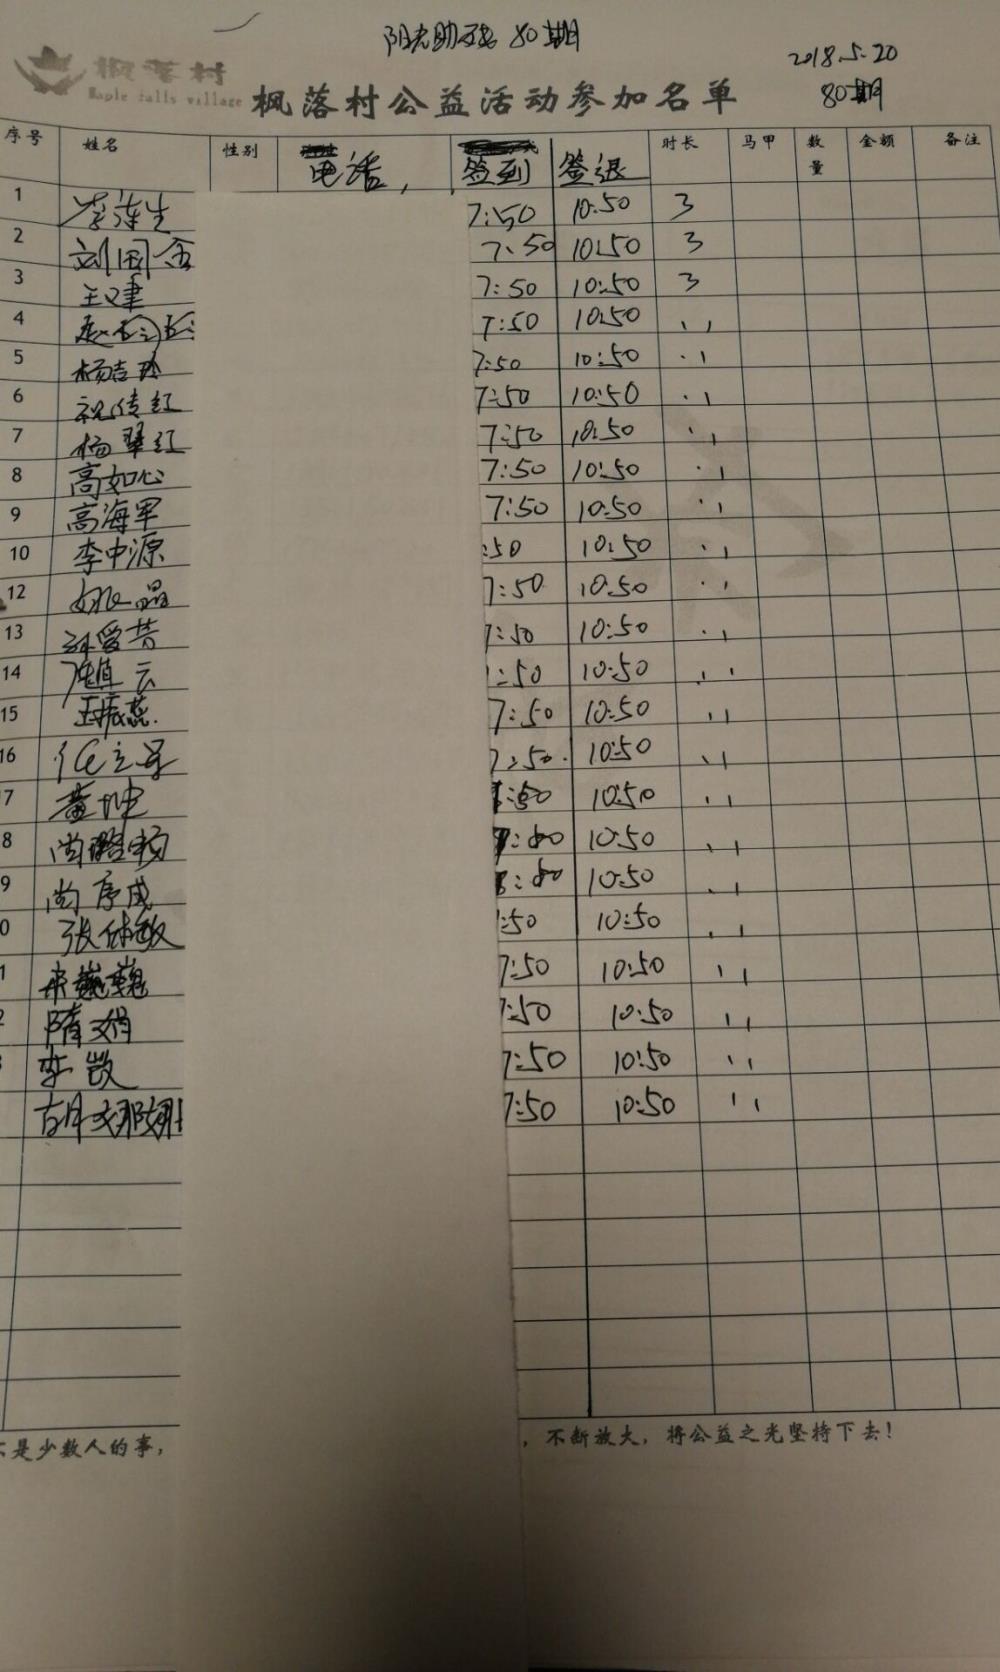 阳光助残 80期
2018.5.20
80期
枫落村
Maple falls village
枫落村公益活动参加名单
序号 姓名 性别 电话, 签到 签退 时长 马甲 数量 金额 备注
1 李连生 7:50 10:50 3
2 刘国金 7:50 10:50 3
3 王建 7:50 10:50 3
4 7:50 10:50 ,,
5 杨吉玲 7:50 10:50 ,,
6 祝传红 7:50 10:50 ,,
7 杨翠红 7:50 10:50 ,,
8 高如心 7:50 10:50 ,,
9 高海军 7:50 10:50 ,,
10 李中源 :50 10:50 ,,
12 姚晶 7:50 10:50 ,,
13 孙爱芳 7:50 10:50 ,,
14 云 :50 10:50 ,,
15 王振蕊. 7:50 10:50 ,,
16 任立导 7:50. 10:50 ,,
7 黄坤 :50 10:50 ,,
8 尚璐杨 10:50 ,,
9 尚序成 10:50 ,,
0 张休敏 :50 10:50 ,,
1 宋巍巍 7:50 10:50 ,,
2 隋文娟 7:50 10:50 ,,
李凯 7:50 10:50 ,,
7:50 10:50 ,,
是少数人的事,
, 不断放大, 将公益之光坚持下去!